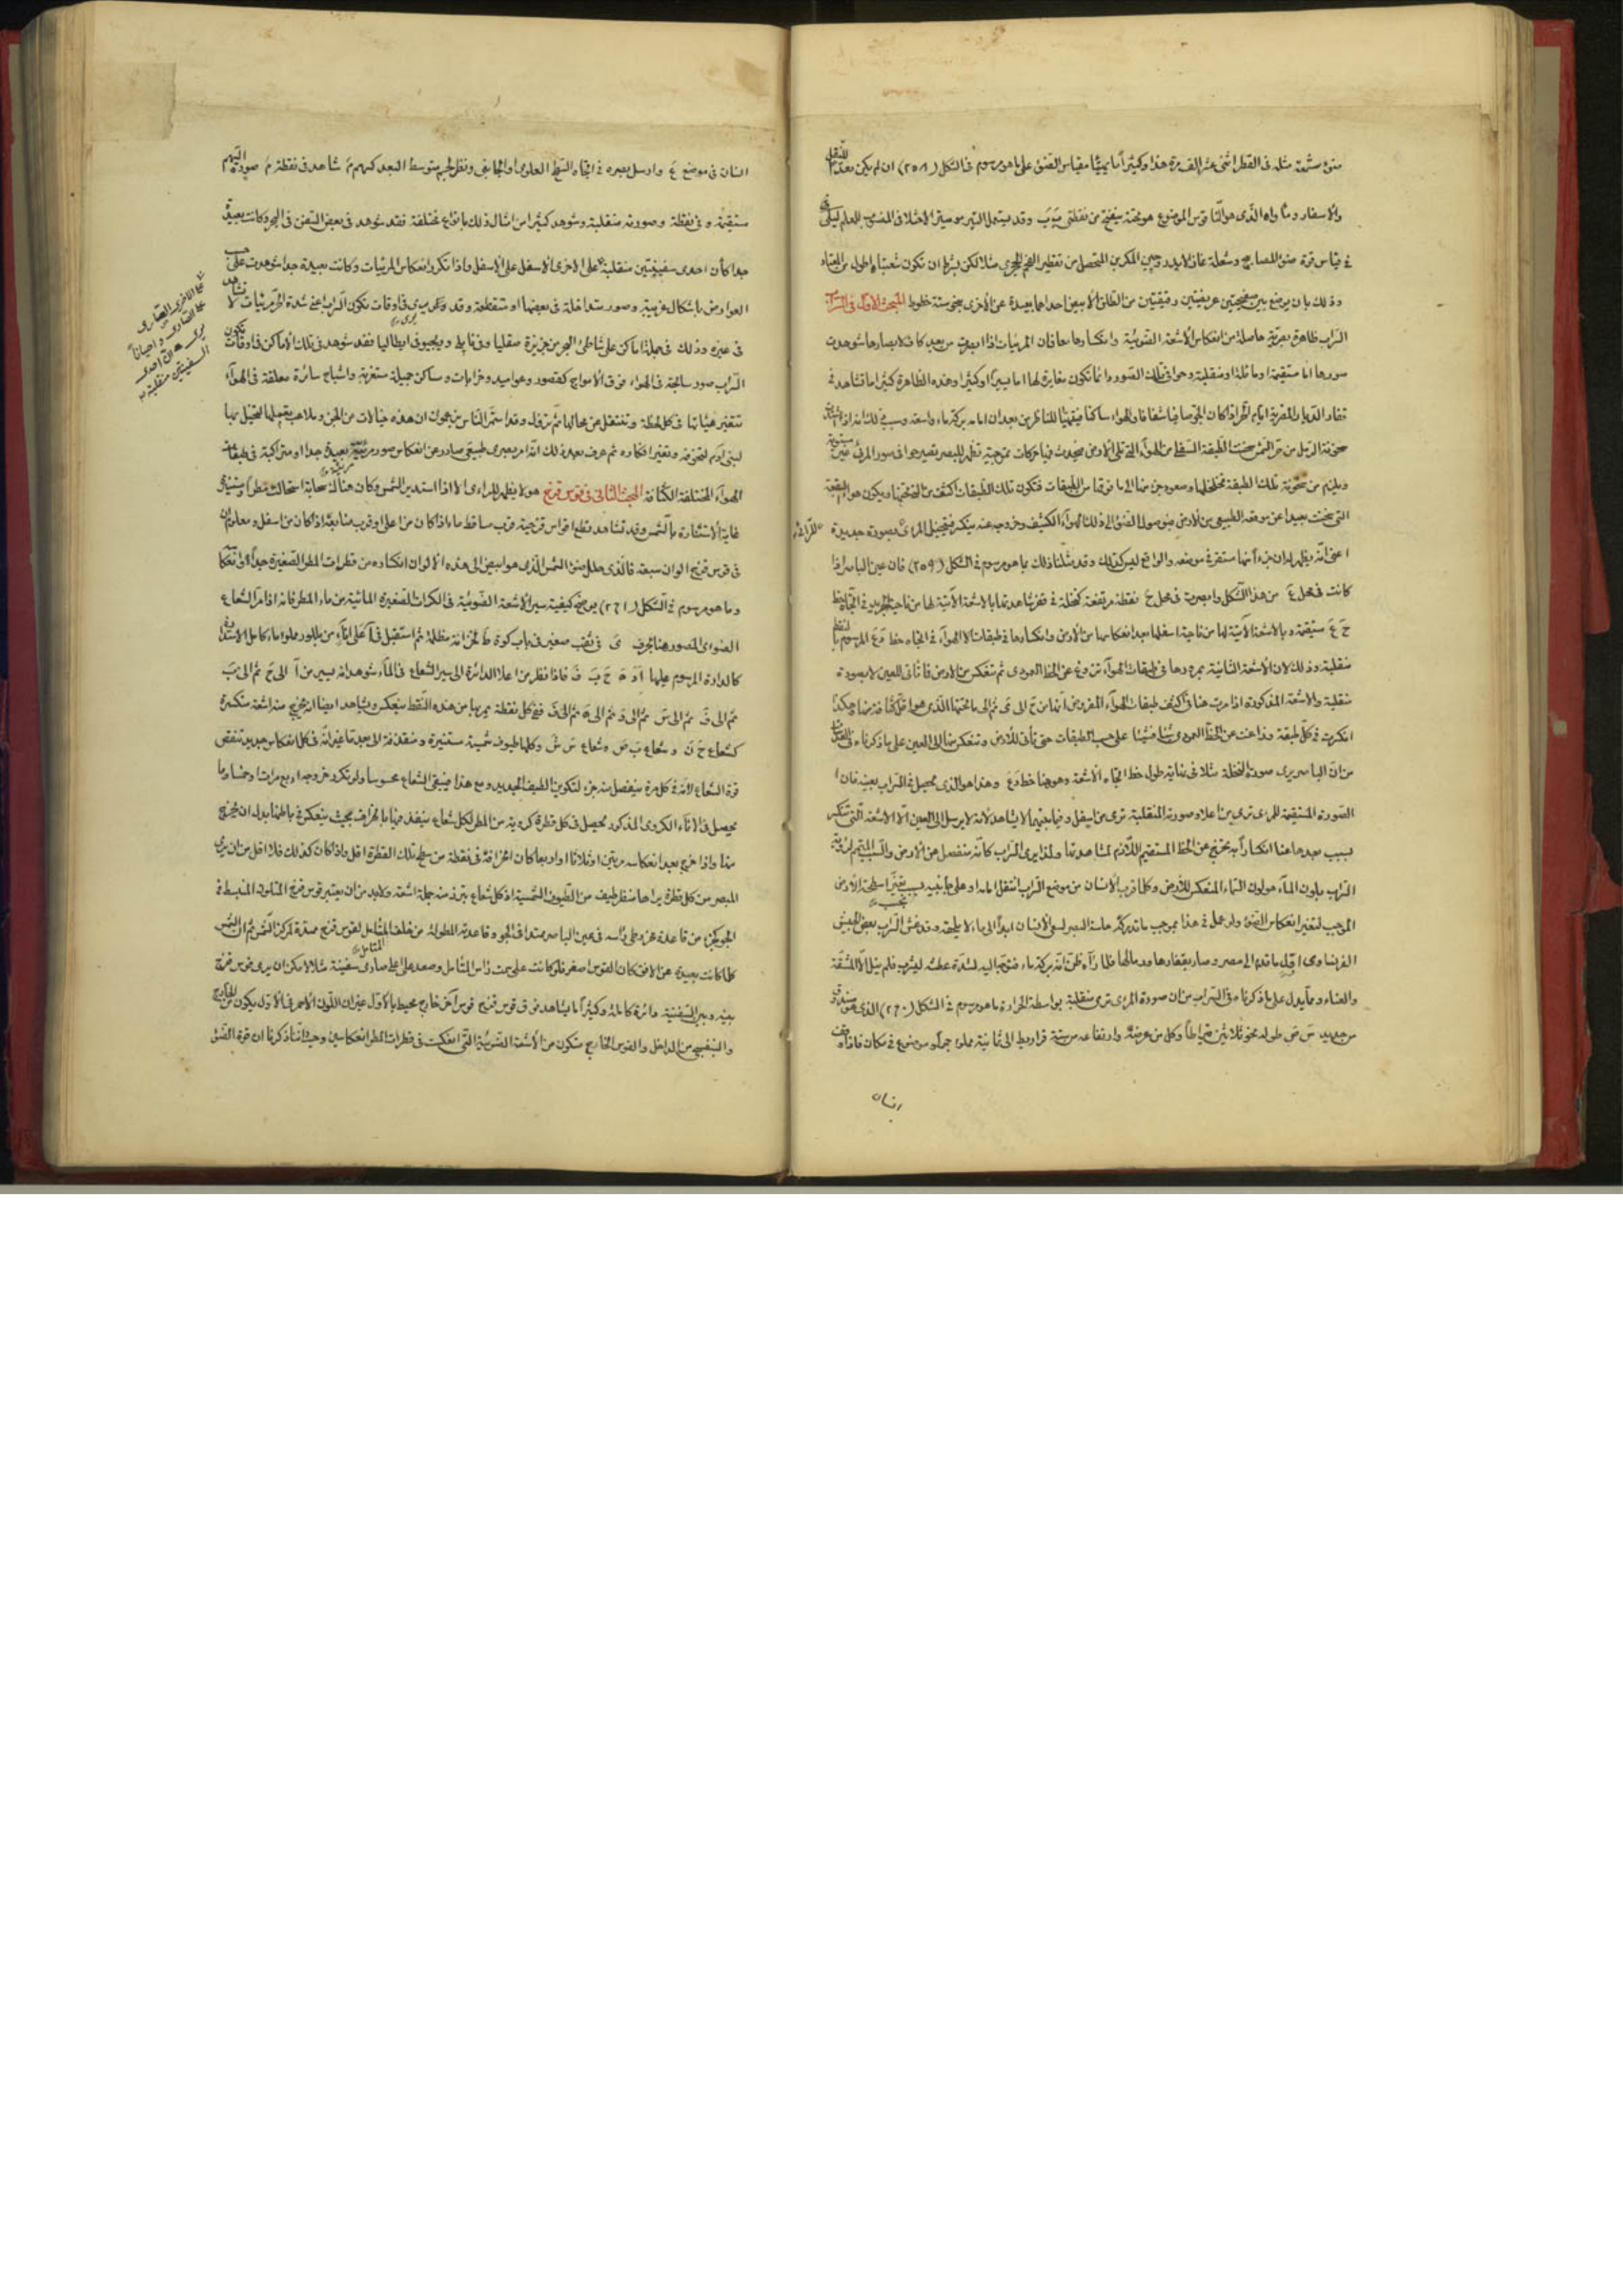 ضوء شمعة مثله فى القطر اثنى عشر الف مرة هذا وكثيراً ما يهيأ مقياس الضوء على ما هو مرسوم فى الشكل (٢٥٨) ان لم يكن معداً للنقل
والاسفار وما واه الذى هو الثا قوس الموضوع هو تحته ينفتح من نقطتى
فى قياس قوة ضوء المصابيح وشعلة غاز الايدروجين المكربن المتحصل من تقطير الفحم الحجرى مثلا لكن بشرط ان تكون شعبتاه اطول من المعتاد
وذلك بان يوضع بين صفيحتين عريضتين رقيقتين من الطلق الابيض احداهما بعيدة عن الاخرى بنحو ستة خطوط المبحث الاول فى السراب
السراب ظاهرة بصرية حاصلة من انعكاس الاشعة الضوئية وانكسارها معا فان المرئيات اذا ابصرت من بعيد كاف لابصارها شوهدت
صورها اما مستقيمة او مائلة او منقلبة وحوافى تلك الصور دائما تكون مغايرة لها اما يسيرا او كثيرا وهذه الظاهرة كثيرا ما تشاهد فى
قفار الديار المصرية ايام الحر اذا كان الجو صافيا شفافا والهواء ساكنا فيتهيأ للناظر من بعد ان امامه بركة ماء واسعة وسبب ذلك انه اذا اشتدت
سخونة الرمل من حر الشمس سخنت الطبقة السفلى من الهواء التى تلى الارض فيحدث فيها حركات تموجية تظهر للبصر تصير حوافى صور المرئى غير مستوية
ويلزم من سخونة تلك الطبقة تخلخلها وصعود جزء منها الى ما فوقها من الطبقات فتكون تلك الطبقات اكثف من التى تحتها ويكون هواء البقعة
التى سخنت بعيدا عن موقعه الطبيعى من الارض فبوصول الضوء الى ذلك الهواء الكثيف وخروجه عنه ينكسر فيتخيل المرئى بصورة جديدة للرائى
اعنى انه يظهر له ان جزءا منها مستقر فى موضعه والواقع ليس كذلك وقد مثلنا ذلك بما هو مرسوم فى الشكل (٢٥٩) فان عين الباصر اذا
كانت فى محل ع من هذا الشكل وابصرت فى محل ح نقطة مرتفعة كنخلة فى قفر شاهدتها بالاشعة الآتية لها من ناحية الجريد فى اتجاه خط
ح ع مستقيمة وبالاشعة الآتية لها من ناحية اسفلها بعد انعكاسها من الارض وانكسارها فى طبقات الهواء فى اتجاه خط د ع المرسوم بالنقط
منقلبة وذلك لان الاشعة الثانية بمرورها فى طبقات الهواء تزوغ عن الخط العمودى ثم تنعكس من الارض فتأتى للعين لا بصورة
منقلبة والاشعة المذكورة اذا مرت هنا فى كثيف طبقات الهواء المفروض انها من ح الى ى ثم الى ما تحتها الذى هو اقل كثافة منها وهكذا
انكسرت فى كل طبقة وزاغت عن الخط العمودى شيأ فشيأ على حسب الطبقات حتى تأتى للارض وتنعكس منها الى العين على ما ذكرناه
من ان الباصر يرى صورة النخلة مثلا فى نهاية طول خط اتجاه الاشعة وهو هنا خط د ع وهذا هو الذى يحصل فى السراب بعينه فان
الصورة المستقيمة للمرئى ترى من اعلا وصورته المنقلبة ترى من اسفل وفيما بينهما لا يشاهد لانه لا يرسل الى العين الا الاشعة التى تنكسر
بسبب بعدها عنا انكساراً به تخرج عن الخط المستقيم اللازم لمشاهدتها ولذا يرى السراب كانه منفصل عن الارض والسبب الملتزم لرؤية
السراب بلون الماء هو لون السماء المنعكس للارض وكلما قرب الانسان من موضع السراب انتقل امامه او على جانبيه بسبب تغير اسطحة الارض
الموجب لتغير انعكاس الضوء ولو عمل فى هذا بموجب ما تدركه حاسة البصر لسعى الانسان ابداً الى ماء لا يلحقه وقد غش السراب بعض الجيش
الفرنساوى اول ما قدم الى مصر وصار بقفارها ورمالها فلما رآه ظن انه بركة ماء فتوجه اليه لشدة عطشه ليشرب فلم ينل الا المشقة
والعناء ومما يدل على ما ذكرناه فى السراب من ان صورة المرئى ترى منقلبة بواسطة الحرارة ما هو مرسوم فى الشكل (٢٦٠) الذى هو صندوق
من حديد س ص طوله نحو ثلاثين قيراطا وكل من عرضه وارتفاعه من ستة قراريط الى ثمانية مملوء جمراً وموضوع فى مكان فاذا وقف
انسان
انسان فى موضع ع وارسل بصره فى اتجاه السطح العلوى او الجانبى ونظر لجسم متوسط البعد كسهم م شاهد فى نقطة م صورة السهم
مستقيمة وفى نقطة وصورته منقلبة وشوهد كثيرا من امثال ذلك بانواع مختلفة فقد شوهد فى بعض السفن فى البحر وكانت بعيدة
جدا كأن احدى سفينتين منقلبة على الاخرى الاسفل على الاسفل واذا تكرر انعكاس المرئيات وكانت بعيدة جدا شوهدت على حسب
العوارض باشكال غريبة وصور متداخلة فى بعضها او متقطعة وقد يرى فى اوقات تكون السراب اعنى شدة الحر مرئيات لا تشاهد
فى غيره وذلك فى جملة اماكن على شاطئ البحر من جزيرة صقليا وفى نابلى وريجيو فى ايطاليا فقد شوهد فى تلك الاماكن فى اوقات تكون
السراب صور سابحة فى الهواء فوق الامواج كقصور وعواميد وخرابات ومساكن جميلة مستغربة واشباح سائرة معلقة فى الهواء
تتغير هيئاتها فى كل لحظة وتنتقل من محالها ثم تزول وقد استمر الناس يزعمون ان هذه خيالات من الجن وملاعب
لبنى آدم لتخوفه وتغير افكاره ثم عرف بعد ذلك انه امر بصرى طبيعى صادر عن انعكاس صور مرئية بعيدة جدا او متراكبة فى طبقات
الهواء المختلفة الكثافة المبحث الثانى فى قوس قزح هو لا يظهر للرائى الا اذا استدبر الشمس وكان هناك سحابة استحالت مطرا ومستنيرة
غاية الاستنارة بالشمس وقد تشاهد قطع اقواس قزحية قرب مساقط ماء اذا كان من اعلى او قرب منابعه اذا كان من اسفل ومعلوم ان
فى قوس قزح الوان سبعة فالذى حلل ضوء الشمس الذى هو ابيض الى هذه الالوان انكساره من قطرات المطر الصغيرة جداً
وما هو مرسوم فى الشكل (٢٦١) يوضح كيفية سير الاشعة الضوئية فى الكرات الصغيرة المائية من ماء المطر فانه اذا مر الشعاع
الضوئى المصور هنا بحرف ى فى ثقب صغير فى باب كوة ط لخزانة مظلمة ثم استقبل فى آ على اناء من بللور مملوء ماء كامل الاستدارة
كالدارة المرسوم عليها فاذا نظر من اعلا الدائرة الى سير الشعاع فى الماء شوهد انه يسير من آ الى ح ثم الى ب
ثم الى ف ثم الى س ثم الى د ثم الى ه ثم الى ف ففى كل نقطة يمر بها من هذه النقط ينعكس ويشاهد ايضا انه يخرج منه اشعة منكسرة
كشعاع ح ن وشعاع ب ض وشعاع س ش وكلها طيوف شمسية مستنيرة ومنقذفة الى بعد ما غير انه فى كل انعكاس جديد تنقص
قوة الشعاع لانه فى كل مرة ينفصل منه جزء لتكوين الطيف الجديد ومع هذا فيبقى الشعاع محسوسا ولو تكرر خروجه اربع مرات او خمسا وما
يحصل فى الاناء الكروى المذكور يحصل فى كل قطرة كروية من المطر لكل شعاع ينفذ فيها بانحراف بحيث ينعكس فى باطنها بدل ان يخرج
منها واذا خرج بعد انعكاسه مرتين او ثلاثا او اربعا كان انحرافه فى نقطة من سطح تلك القطرة اقل واذا كان كذلك فلا اقل من ان يرى
المبصر من كل قطرة يراها منظر طيف من الطيوف الشمسية اذ كل شعاع يتبدد منه جملة اشعة ولابد من ان يعتبر قوس قزح المتلون المنبسط فى
الجو كجزء من قاعدة مخروطى رأسه فى عين الباصر ممتد فى الجو وقاعدته المطولة من خلف المتأمل لقوس قزح ممتدة لمركز الشمس ثم ان الشمس
كلما كانت بعيدة عن الافق كان القوس اصغر فلو كانت على سمت رأس المتأمل وصعد على اعلى صارى سفينة مثلا لامكن ان يرى قوس قزح
بينه وبين السفينة دائرة كاملة وكثيراً ما يشاهد فوق قوس قزح قوس آخر خارج محيط بالاول غير ان اللون الاحمر فى الاول يكون من الخارج
والبنفسجى من الداخل والقوس الخارج متكون من الاشعة الضوئية التى انعكست فى قطرات المطر انعكاسين وحيث اننا ذكرنا ان قوة الضوء
على الاخرى الصارى
على الصارى واحيانا
يرى هناك احدى
السفينتين منقلبة